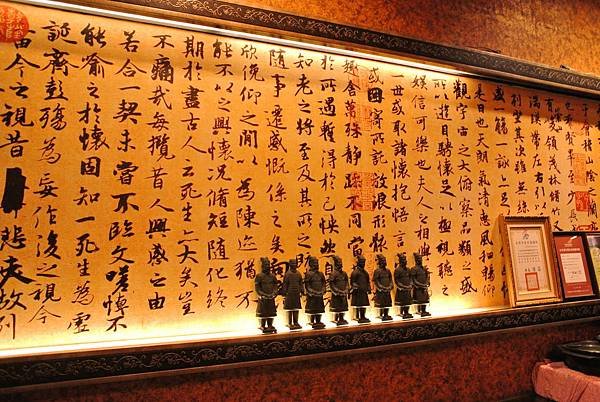 山陰之蘭
也群賢畢至少長
有崇山峻領茂林脩竹
湍暎帶左右引以
列坐其次雖無絲
盛一觴一詠亦足
是日也天朗氣清惠風和暢仰
觀宇宙之大俯察品類之盛
所以遊目騁懷足以極視聽之
娛信可樂也夫人之相與
一世或取諸懷抱悟言一
或因寄所託放浪形骸
趣舍萬殊靜躁不同當
於所遇暫得於己怏然自
知老之將至及其所之既
隨事遷感慨係之矣向
欣俛仰之間以為陳迹猶不
能不以之興懷況脩短隨化終
期於盡古人云死生亦大矣豈
不痛哉每攬昔人興感之由
若合一契未嘗不臨文嗟悼不
能喻之於懷固知一死生為虛
誕齊彭殤為妄作後之視今
由今之視昔悲夫故列